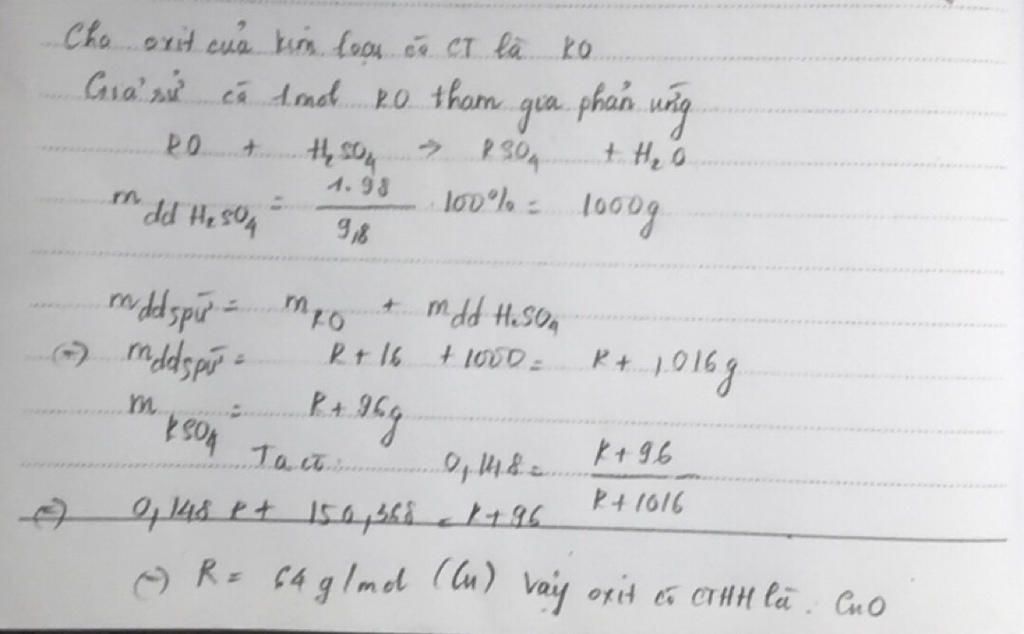 Cho oxit của kim loại có CT là RO
Giả sử có 1mol RO tham gia phản ứng
RO + H₂SO₄ → RSO₄ + H₂O
m dd H₂SO₄ = 1.98 / 9,8 . 100% = 1000g
m ddspứ = m RO + m dd H₂SO₄
(=) m ddspứ = R + 16 + 1000 = R + 1016g
m RSO₄ = R + 96g
Ta có: 0,148 = R + 96 / R + 1016
(=) 0,148 R + 150,368 = R + 96
(=) R = 64 g/mol (Cu) Vậy oxit có CTHH là: CuO